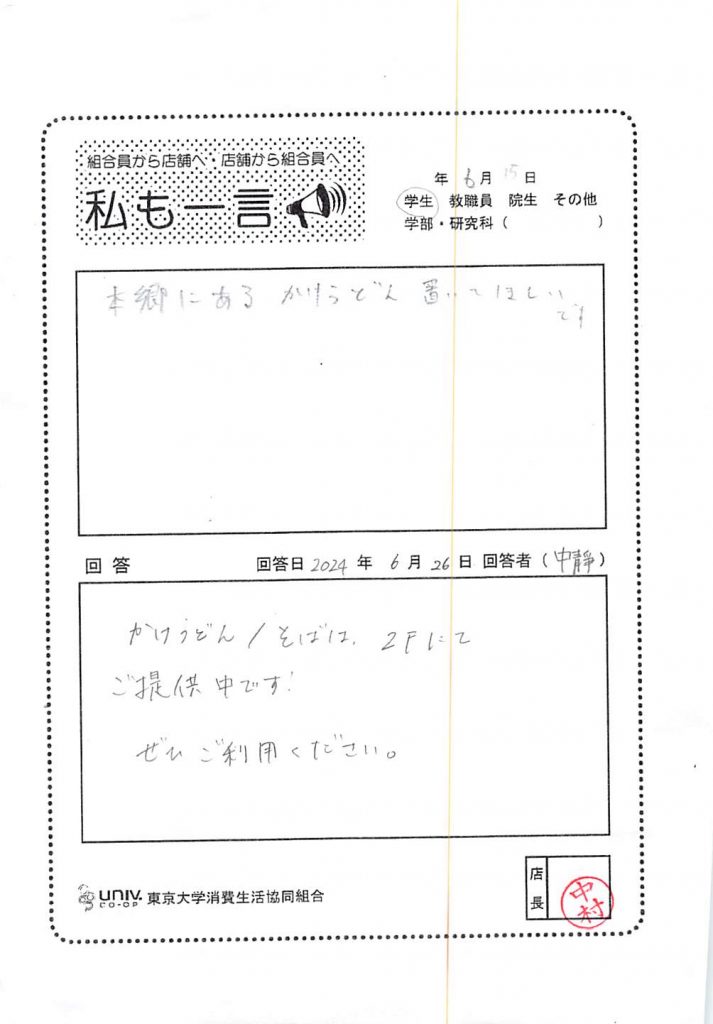 組合員から店舗へ・店舗から組合員へ
私も一言
年 6月 15日
学生 教職員 院生 その他
学部・研究科( )
本郷にある かけうどん 置いてほしい
です
回答
回答日 2024 年 6 月 26 日 回答者(中静)
かけうどん/そばは、2Fにて
ご提供中です!
ぜひご利用ください。
UNIV.
CO-OP
東京大学消費生活協同組合
店長
中村